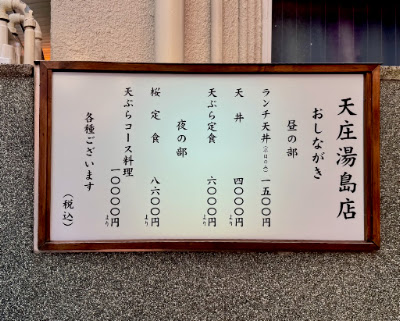 天庄湯島店
おしながき
昼の部
ランチ天丼 一五〇〇円
天丼 四〇〇〇円より
天ぷら定食 六〇〇〇円より
夜の部
桜定食 八六〇〇円より
天ぷらコース料理 一〇〇〇〇円より
各種ございます
(税込)